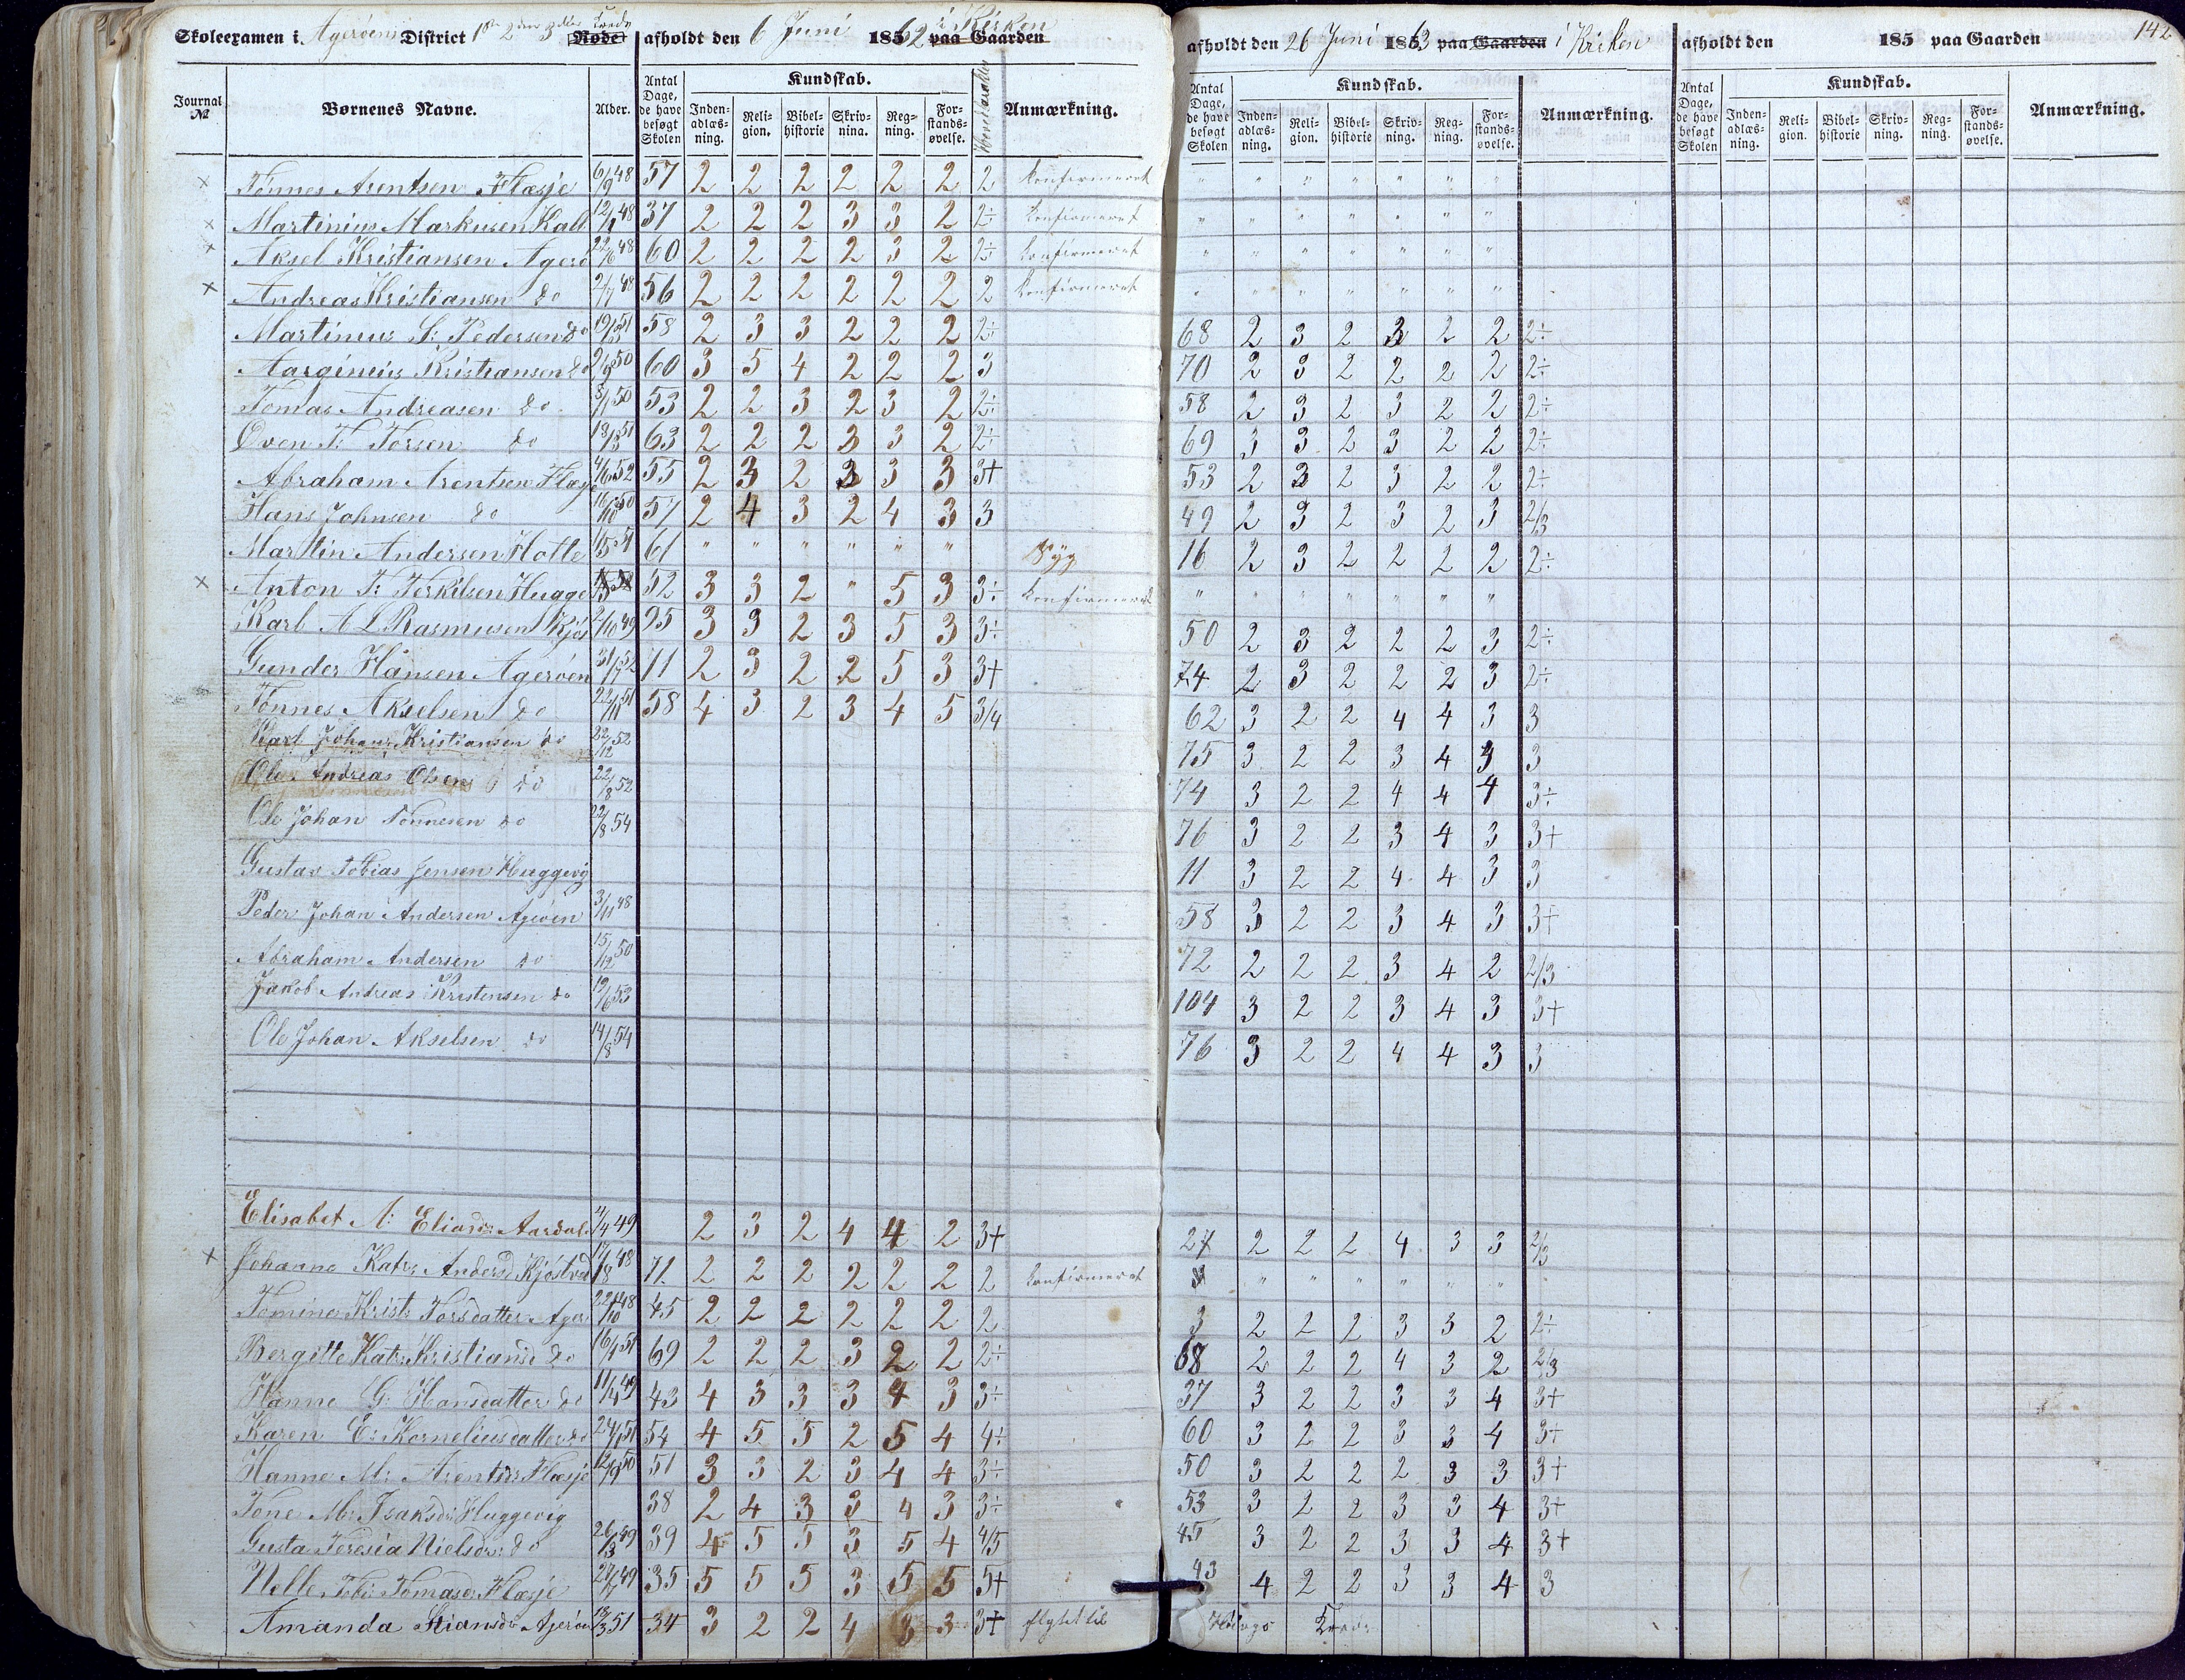 Skoleexamen i Agerøens District 1ste 2den 3die Kreds Rode afholdt den 6 Juni 1862 i Kirken paa Gaarden
afholdt den 26 Juni 1863 paa Gaarden i Kirken afholdt den 185 paa Gaarden 142
Journal № Børnenes Navne. Alder. Antal Dage, de have besøgt Skolen Kundskab. Indenadlæsning. Religion. Bibelhistorie Skrivning. Regning. Forstandsøvelse. Hovedkarakter Anmærkning.
Antal Dage, de have besøgt Skolen Kundskab. Indenadlæsning. Religion. Bibelhistorie Skrivning. Regning. Forstandsøvelse. Anmærkning.
Antal Dage, de have besøgt Skolen Kundskab. Indenadlæsning. Religion. Bibelhistorie Skrivning. Regning. Forstandsøvelse. Anmærkning.
× Tønnes Arentsen Flæsje 6/9 48 57 2 2 2 2 2 2 2 Konfirmeret " " " " " " "
× Martinius Markusen Kall 12/1 48 37 2 2 2 3 3 2 2÷ Konfirmeret " " " " " " "
× Aksel Kristiansen Agerø 22/6 48 60 2 2 2 2 3 2 2÷ Konfirmeret " " " " " " "
× Andreas Kristiansen do 2/7 48 56 2 2 2 2 2 2 2 Konfirmeret " " " " " " "
Martinius S: Pedersen do 19/5 51 58 2 3 3 2 2 2 2÷ 68 2 3 2 3 2 2 2÷
Aarginius Kristiansen do 2/9 50 60 3 5 4 2 2 2 3 70 2 3 2 2 2 2 2÷
Tomas Andreasen do 5/11 50 53 2 2 3 2 3 2 2÷ 58 2 3 2 3 2 2 2÷
Oven T: Torsen do 18/3 51 63 2 2 2 3 3 2 2÷ 69 3 3 2 3 2 2 2÷
Abraham Arentsen Flæsje 4/6 52 55 2 3 2 3 3 3 3+ 53 2 3 2 3 2 2 2÷
Hans Johnsen do 16/10 50 57 2 4 3 2 4 3 3 49 2 3 2 3 2 3 2/3
Martin Andersen Holte 1/5 51 61 " " " " " " Syg 16 2 3 2 2 2 2 2÷
× Anton T: Terkilsen Hugge 52 3 3 2 " 5 3 3÷ Konfirmeret " " " " " " "
Karl A L Rasmusen Kjøs 2/10 49 95 3 3 2 3 5 3 3÷ 50 2 3 2 2 2 3 2÷
Gunder Hansen Agerøen 31/7 52 71 2 3 2 2 5 3 3+ 74 2 3 2 2 2 3 2÷
Tønnes Akselsen do 22/11 51 58 4 3 2 3 4 5 3/4 62 3 2 2 4 4 3 3
Karl Johan Kristiansen do 22/12 52 75 3 2 2 3 4 3 3
Ole Andreas Olsen do 22/8 52 74 3 2 2 4 4 4 3÷
Ole Johan Tønnesen do 22/8 54 76 3 2 2 3 4 3 3+
Gustav Tobias Jensen Huggevig 11 3 2 2 4 4 3 3
Peder Johan Andersen Agerøen 3/11 48 58 3 2 2 3 4 3 3+
Abraham Andersen do 15/12 50 72 2 2 2 3 4 2 2/3
Jakob Andreas Kristensen do 19/6 53 104 3 2 2 3 4 3 3+
Ole Johan Akselsen do 14/8 54 76 3 2 2 4 4 3 3
Elisabet A: Eliasdr: Aardal 4/4 49 2 3 2 4 4 2 3+ 27 2 2 2 4 3 3 2/3
× Johanne Katr: Andersd Kjøstvd 17/8 48 72 2 2 2 2 2 2 2 Konfirmeret " " " " " "
Tomine Krist: Torsdatter Ager 22/10 48 45 2 2 2 2 2 2 2 3 2 2 2 3 3 2 2÷
Bergitte Katr: Kristiansd do 16/4 51 69 2 2 2 3 2 2 2÷ 68 2 2 2 4 3 2 2/3
Hanne G: Hansdatter do 11/4 49 43 4 3 3 3 4 3 3÷ 37 3 2 2 3 3 4 3+
Karen E: Korneliusdatter do 24/1 51 54 4 5 5 2 5 4 4÷ 60 3 2 2 3 3 4 3+
Hanne M: Arentsdr: Flæsje 12/9 50 51 3 3 2 3 4 4 3÷ 50 3 2 2 2 3 3 3+
Tone M: Isaksdr: Huggevig 38 2 4 3 3 4 3 3÷ 53 3 2 2 3 3 4 3+
Gusta Teresia Nielsdr: do 26/3 49 39 4 5 5 3 5 4 4/5 45 3 2 2 3 3 4 3+
Nelle Tobi: Tomasdr Flæsje 27/7 49 35 5 5 5 3 5 5 5+ 43 4 2 2 3 3 4 3
Amanda Stiansdr Agerøen 13/3 51 34 3 2 2 4 3 3 3+ flyttet til Kreds